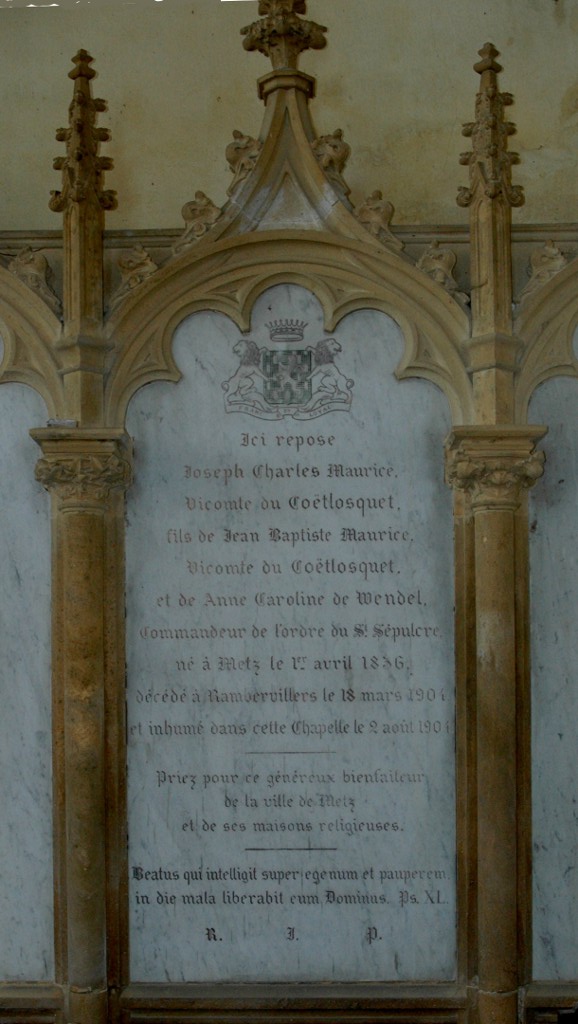 FRANC ET LOYAL
Ici repose
Joseph Charles Maurice,
Vicomte du Coëtlosquet,
fils de Jean Baptiste Maurice,
Vicomte du Coëtlosquet,
et de Anne Caroline de Wendel,
Commandeur de l'ordre du St Sépulcre,
né à Metz le 1er avril 1836,
décédé à Rambervillers le 18 mars 1904
et inhumé dans cette Chapelle le 2 août 1904
Priez pour ce généreux bienfaiteur
de la ville de Metz
et de ses maisons religieuses.
Beatus qui intelligit super egenum et pauperem
in die mala liberabit eum Dominus. Ps. XL.
R. I. P.